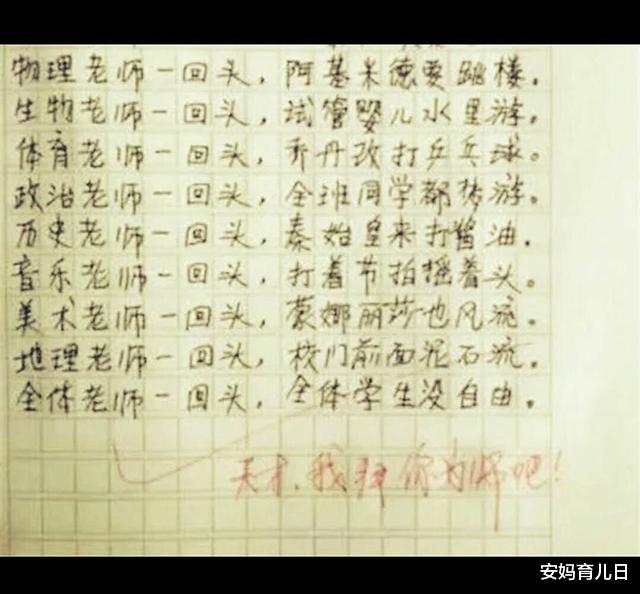 物理老师一回头，阿基米德要跳楼。
生物老师一回头，试管婴儿水里游。
体育老师一回头，乔丹改打乒乓球。
政治老师一回头，全班同学都梦游。
历史老师一回头，秦始皇来打酱油。
音乐老师一回头，打着节拍摇着头。
美术老师一回头，蒙娜丽莎也风流。
地理老师一回头，校门前面泥石流。
全体老师一回头，全体学生没自由。
天才，我拜你为师吧！
安妈育儿日